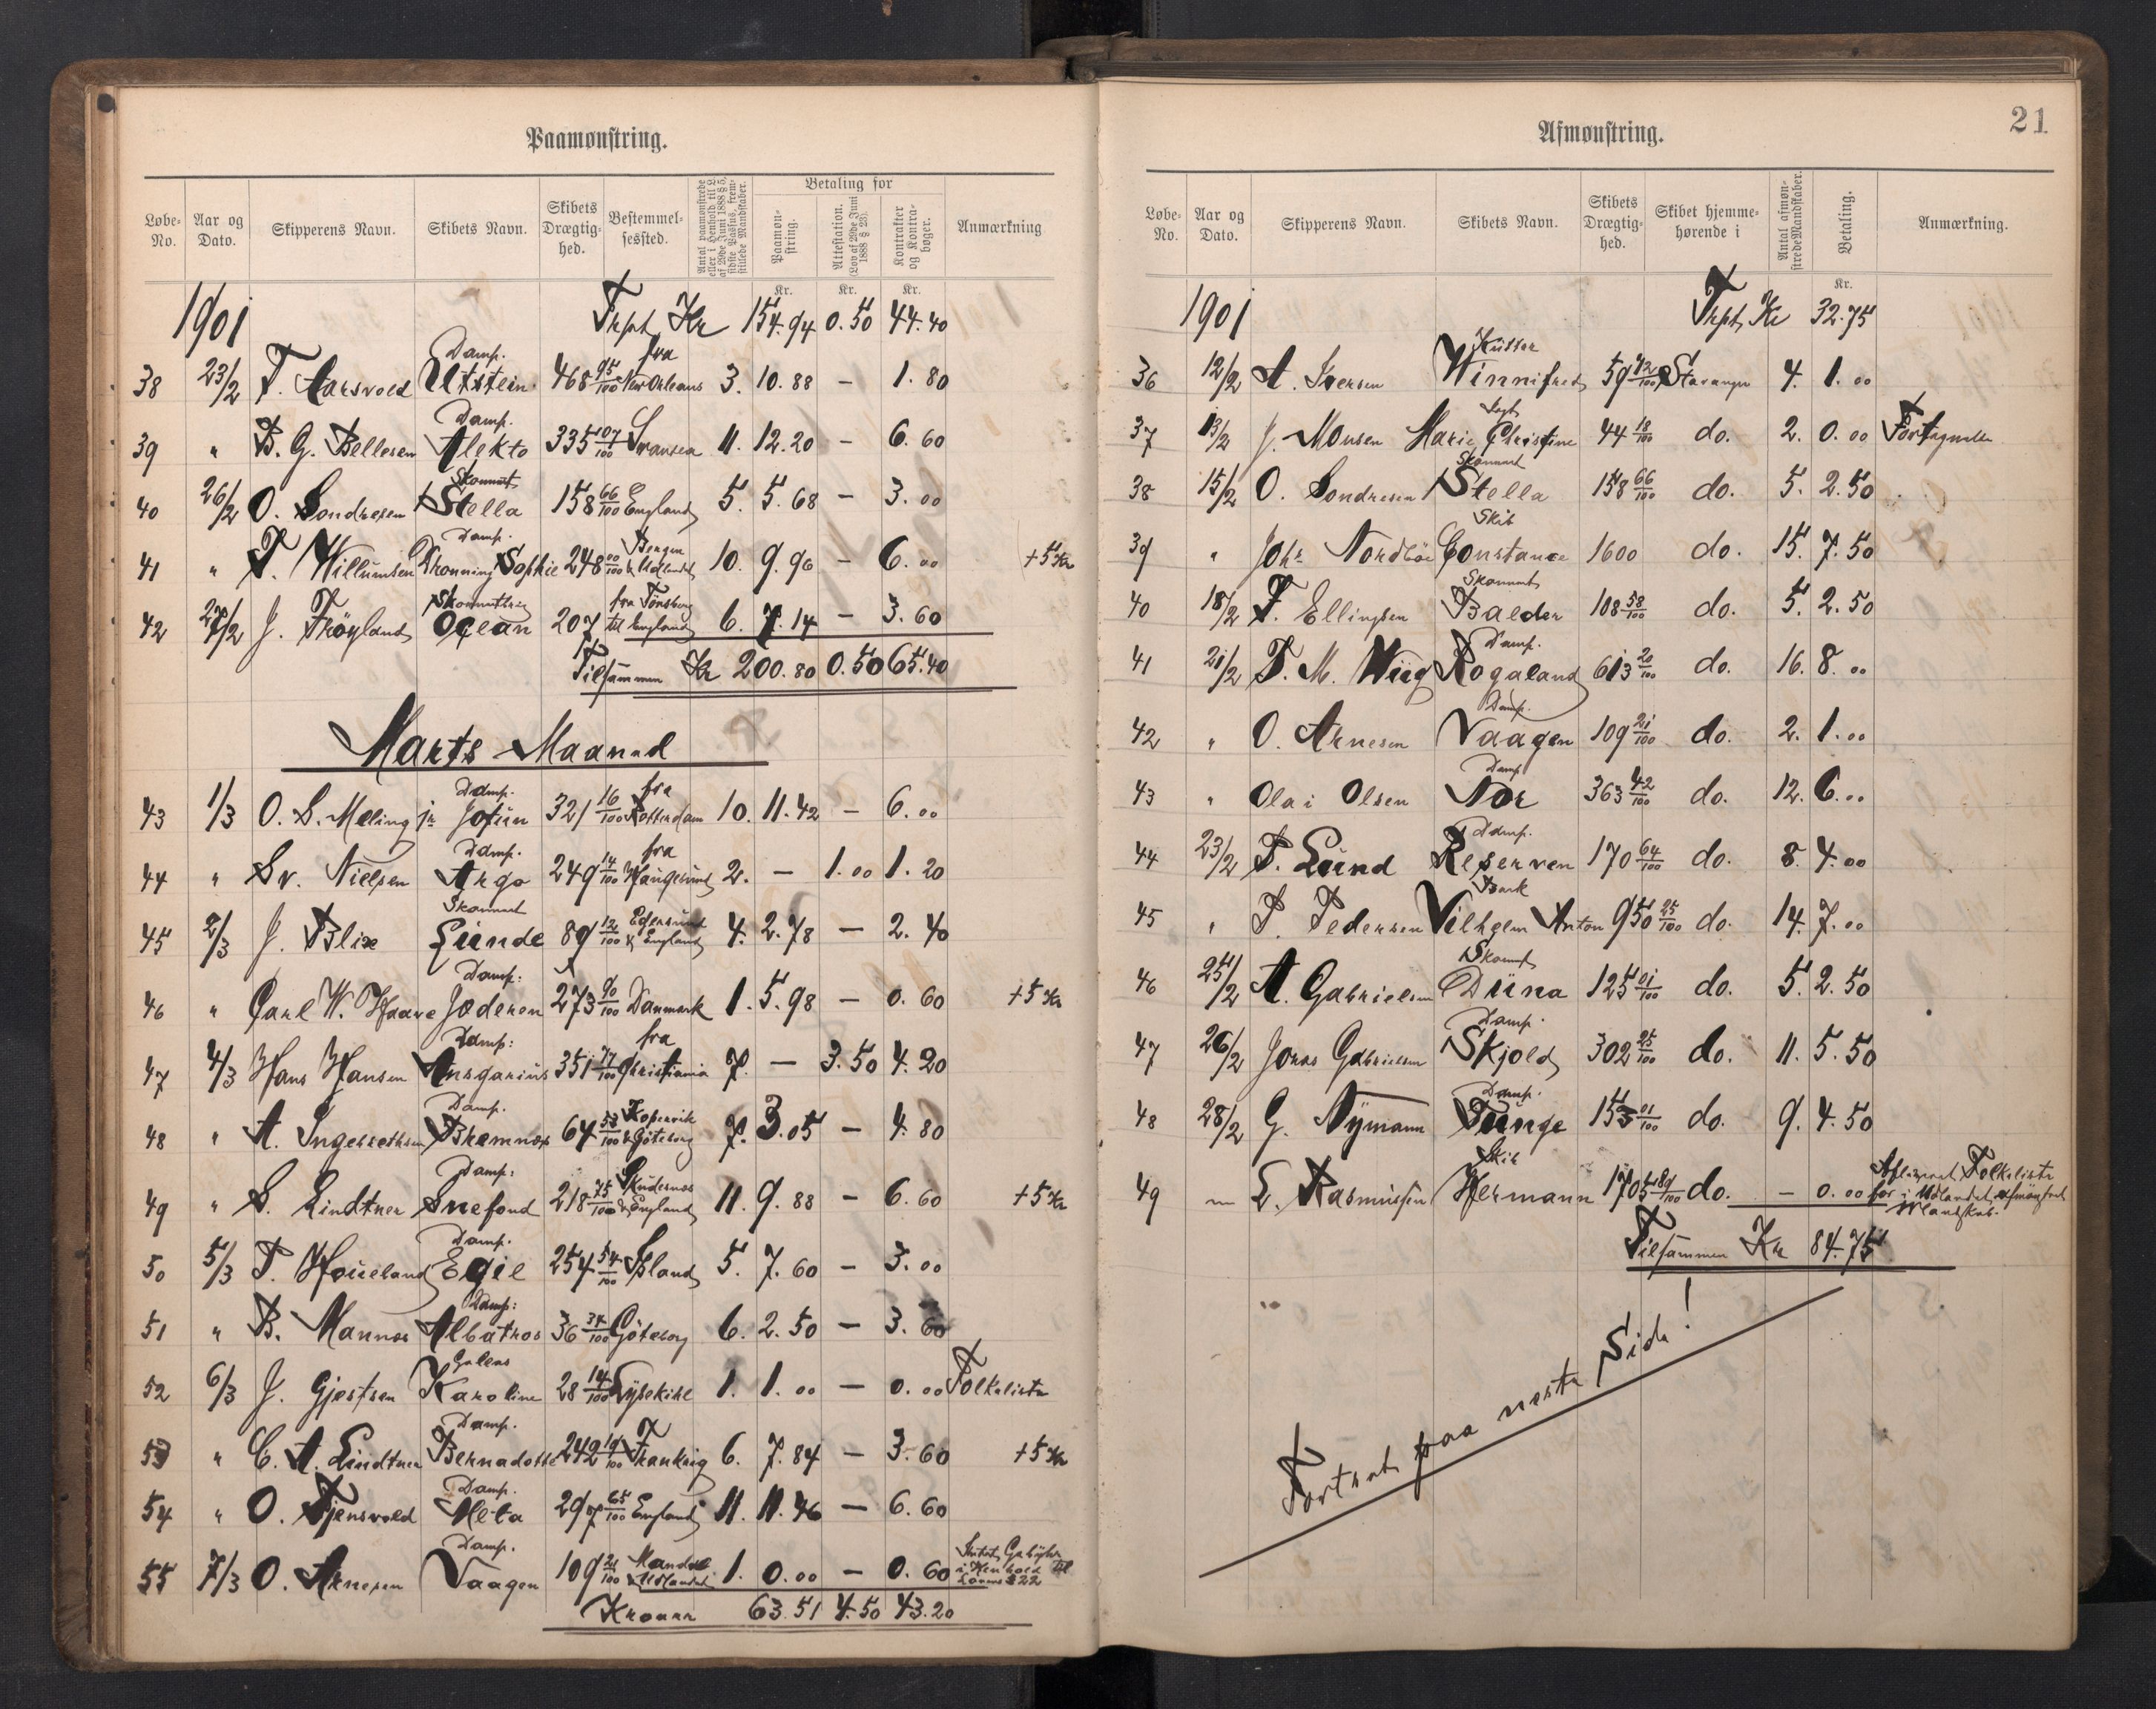 Paamønstring.
Løbe-No. Aar og Dato. Skipperens Navn. Skibets Navn. Skibets Drægtig-hed. Bestemmel-sessted. Antal paamønstrede eller i Henhold til L. af 29de Juni 1888 § 5, sidste Passus, frem-stillede Mandskaber. Betaling for Paamøn-string. Attestation. (Lov af 29de Juni 1888 § 23). Kontrakter og Kontra-bøger. Anmærkning
Kr. Kr. Kr.
1901 Trpt. Kr 154.94 0.50 44.40
38 23/2 T. Aarsvold Damp. Utstein 468 95/100 fra New Orleans 3. 10.88 — 1.80
39 " B. G. Bellesen Damp. Alekto 335 07/100 Swansea 11. 12.20 — 6.60
40 26/2 O. Sondresen Skonnert Stella 158 66/100 England 5. 5.68 — 3.00
41 " T. Willumsen Damp. Dronning Sophie 248 00/100 Bergen & Udlandet 10. 9.96 — 6.00 +5 Kr
42 27/2 J. Tköyland Ocean 207 fra Tönsberg til England 6. 7.14 — 3.60
Tilsammen Kr 200.80 0.50 65.40
Marts Maaned
43 1/3 O. S. Meling jr Damp. Jotun 321 16/100 fra Rotterdam 10. 11.42 — 6.00
44 " Sv. Nielsen Damp. Argo 249 14/100 fra Haugesund 2. — 1.00 1.20
45 2/3 J. Blixe Skonnert Lunde 89 12/100 Egersund & England 4. 2.78 — 2.40
46 " Carl W. Haave Damp. Jæderen 273 90/100 Danmark 1. 5.98 — 0.60 +5 Kr
47 4/3 Hans Hansen Damp. Ansgarius 351 77/100 fra Christiania 7. — 3.50 4.20
48 " A. Ingebrethsen Damp. Bremnæs 64 53/100 Kopervik & Göteborg 7. 3.05 — 4.80
49 " S. Lindtner Damp. Snefond 218 75/100 Skudenes & England 11. 9.88 — 6.60 +5 Kr
50 5/3 T. Houeland Damp. Egil 254 54/100 Island 5. 7.60 — 3.00
51 " B. Mannes Damp. Albatros 36 34/100 Göteborg 6. 2.50 — 3.60
52 6/3 J. Gjertsen Galeas Karoline 28 14/100 Lysekihl 1. 1.00 — 0.00 Folkeliste
53 " C. A. Lindtner Damp. Bernadotte 242 19/100 Frankrig 6. 7.84 — 3.60 +5 Kr
54 " O. Tjensvold Damp. Meta 297 65/100 England 11. 11.46 — 6.60
55 7/3 O. Arnesen Damp. Vaagen 109 21/100 Mandal & Udlandet 1. 0.00 — 0.60 i Henhold til Lovens § 22
Kroner 63.51 4.50 43.20
21
Afmønstring.
Løbe-No. Aar og Dato. Skipperens Navn. Skibets Navn. Skibets Drægtig-hed. Skibet hjemme-hørende i Antal afmøn-strede Mandskaber. Betaling. Anmærkning.
Kr.
1901 Trpt. Kr 32.75
36 12/2 A. Iversen Kutter Winnifred 59 42/100 Stavanger 4. 1.00
37 13/2 J. Monsen Jagt Marie Christine 44 18/100 do. 2. 0.00
38 15/2 O. Sondresen Skonnert Stella 158 66/100 do. 5. 2.50
39 " Johs Nordböe Skib Constance 1600 do. 15. 7.50
40 18/2 T. Ellingsen Skonnert Balder 108 58/100 do. 5. 2.50
41 21/2 T. M. Wiig Damp. Rogaland 613 20/100 do. 16. 8.00
42 " O. Arnesen Damp. Vaagen 109 21/100 do. 2. 1.00
43 " Olai Olsen Damp Nor 363 42/100 do. 12. 6.00
44 23/2 P. Lund Damp. Reserven 170 64/100 do. 8. 4.00
45 " P. Pedersen Bark Vilhelm Anton 950 25/100 do. 14. 7.00
46 25/2 A. Gabrielsen Skonnert Duna 125 01/100 do. 5. 2.50
47 26/2 Jonas Gabrielsen Damp. Skjold 302 25/100 do. 11. 5.50
48 28/2 G. Nymann Damp. Tunge 153 01/100 do. 9. 4.50
49 " L. Rasmussen Skib Hermann 1705 89/100 do. — 0.00 Afleveret Folkeliste for i Udlandet afmønstret Mandskab.
Tilsammen Kr 84.75
Fortsat paa næste Side!